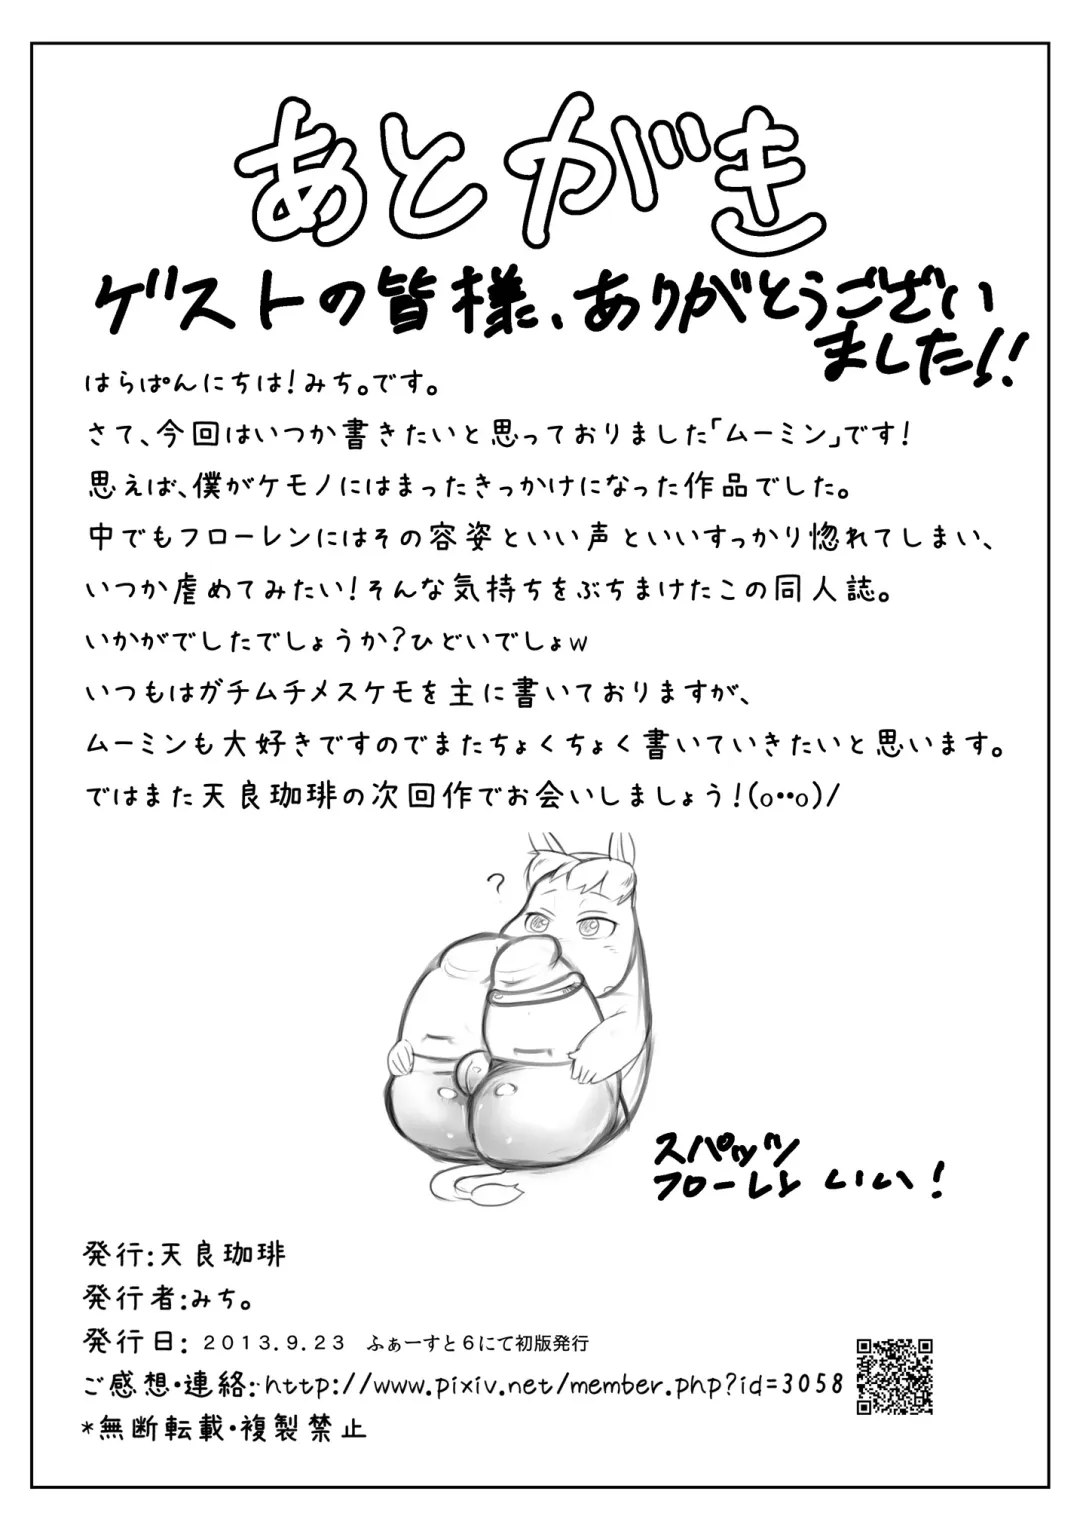 あとがき
ゲストの皆様、ありがとうござい
ました!!
はらぱんにちは!みち。です。
さて、今回はいつか書きたいと思っておりました「ムーミン」です!
思えば、僕がケモノにはまったきっかけになった作品でした。
中でもフローレンにはその容姿といい声といいすっかり惚れてしまい、
いつか虐めてみたい!そんな気持ちをぶちまけたこの同人誌。
いかがでしたでしょうか?ひどいでしょw
いつもはガチムチメスケモを主に書いておりますが、
ムーミンも大好きですのでまたちょくちょく書いていきたいと思います。
ではまた天良珈琲の次回作でお会いしましょう!(o••o)/
?
スパッツ
フローレン いい!
発行:天良珈琲
発行者:みち。
発行日: 2013.9.23 ふぁーすと6にて初版発行
ご感想・連絡:http://www.pixiv.net/member.php?id=3058
*無断転載・複製禁止